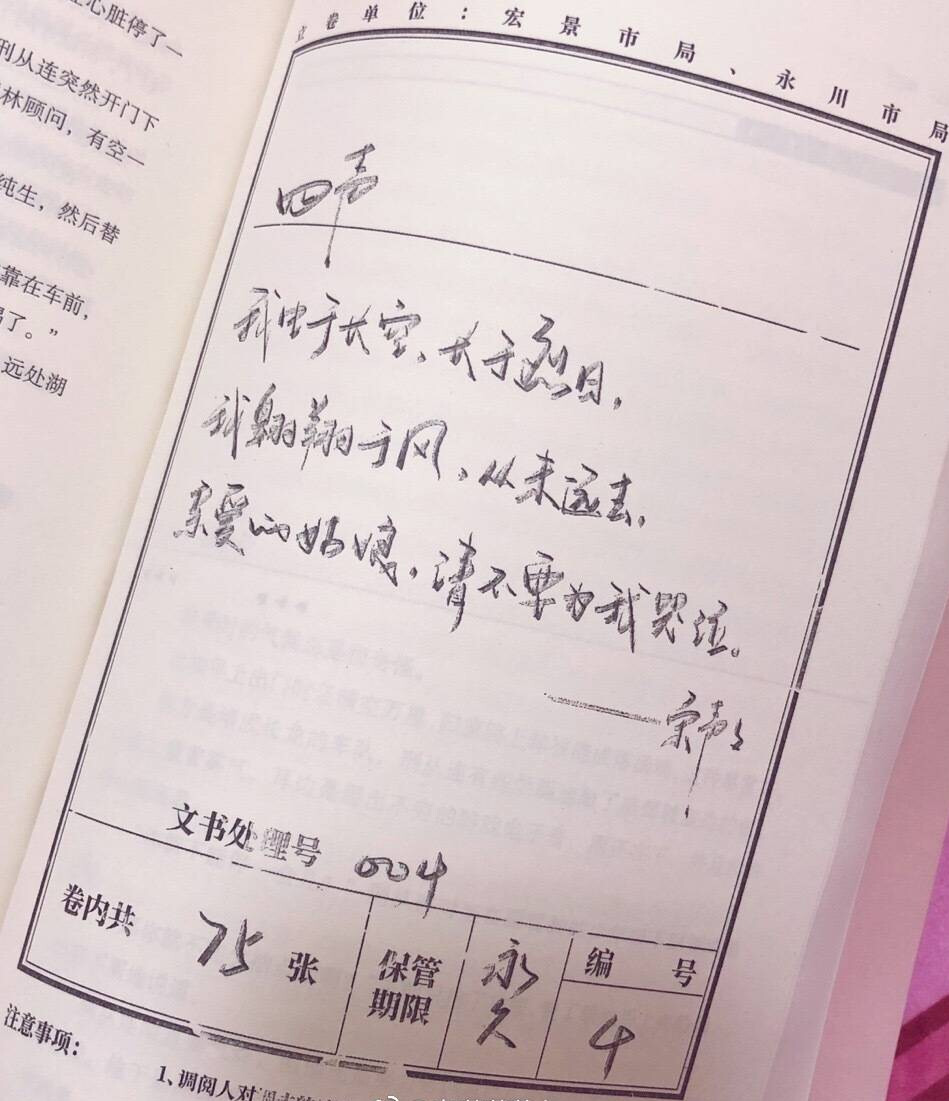 心脏停了一
刑从连突然开门下
林顾问，有空一
纯生，然后替
靠在车前，
了。”
远处湖
立卷单位：宏景市局、永川市局
四声
我生于长空、长于烈日，
我翱翔于风、从未远去，
亲爱的姑娘，请不要为我哭泣。
——宋声声
文书处理号 004
卷内共 75 张
保管期限 永久
编号 4
注意事项：
1、调阅人对